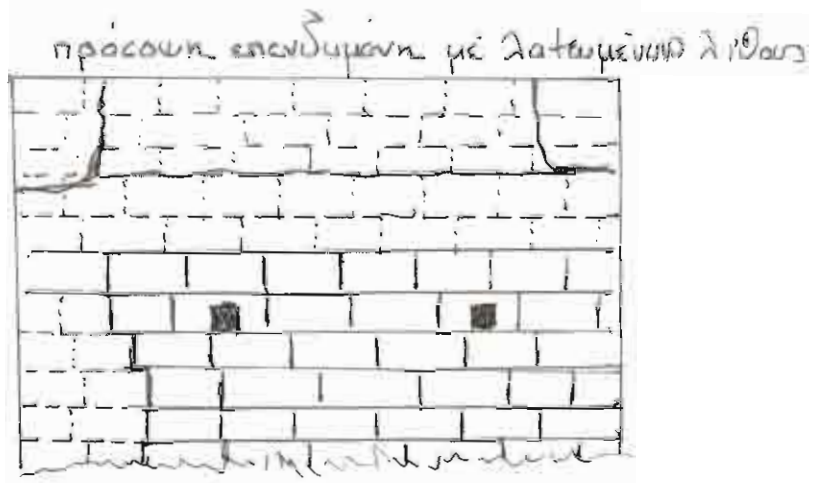 πρόσοψη επενδυμένη μέ λατευμένους λίθους